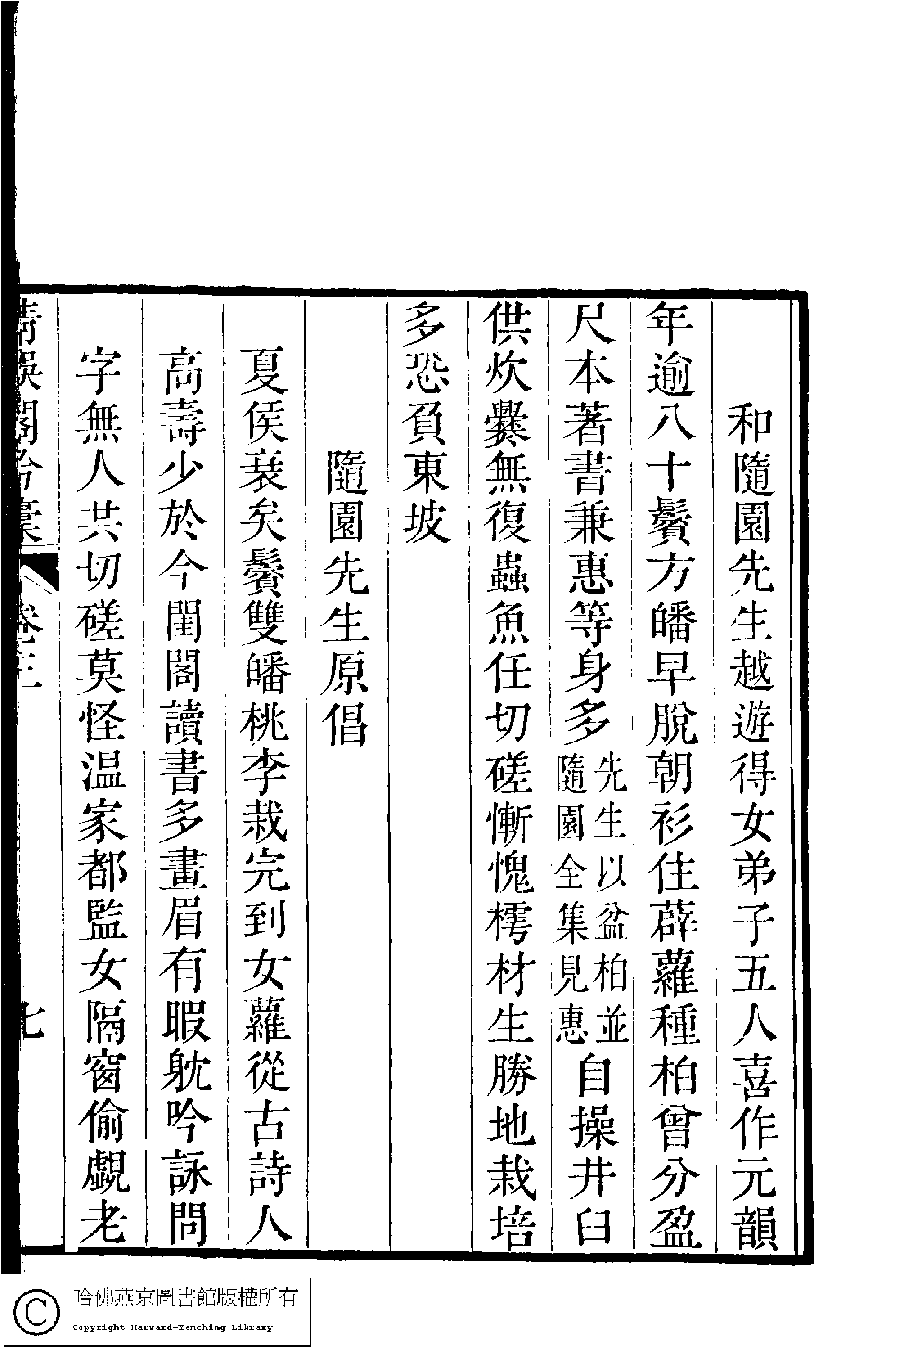 和隨園先生越遊得女弟子五人喜作元韻
年逾八十鬢方皤早脫朝衫住薜蘿種柏曾分盈
尺本著書兼惠等身多先生以盆柏並隨園全集見惠自操井臼
供炊爨無復蟲魚任切磋慚愧樗材生勝地栽培
多恐負東坡
隨園先生原倡
夏侯衰矣鬢雙皤桃李栽完到女蘿從古詩人
高壽少於今閨閣讀書多畫眉有暇躭吟詠問
字無人共切磋莫怪溫家都監女隔窗偷覷老
七
哈佛燕京圖書館版權所有
Copyright Harvard-Yenching Library